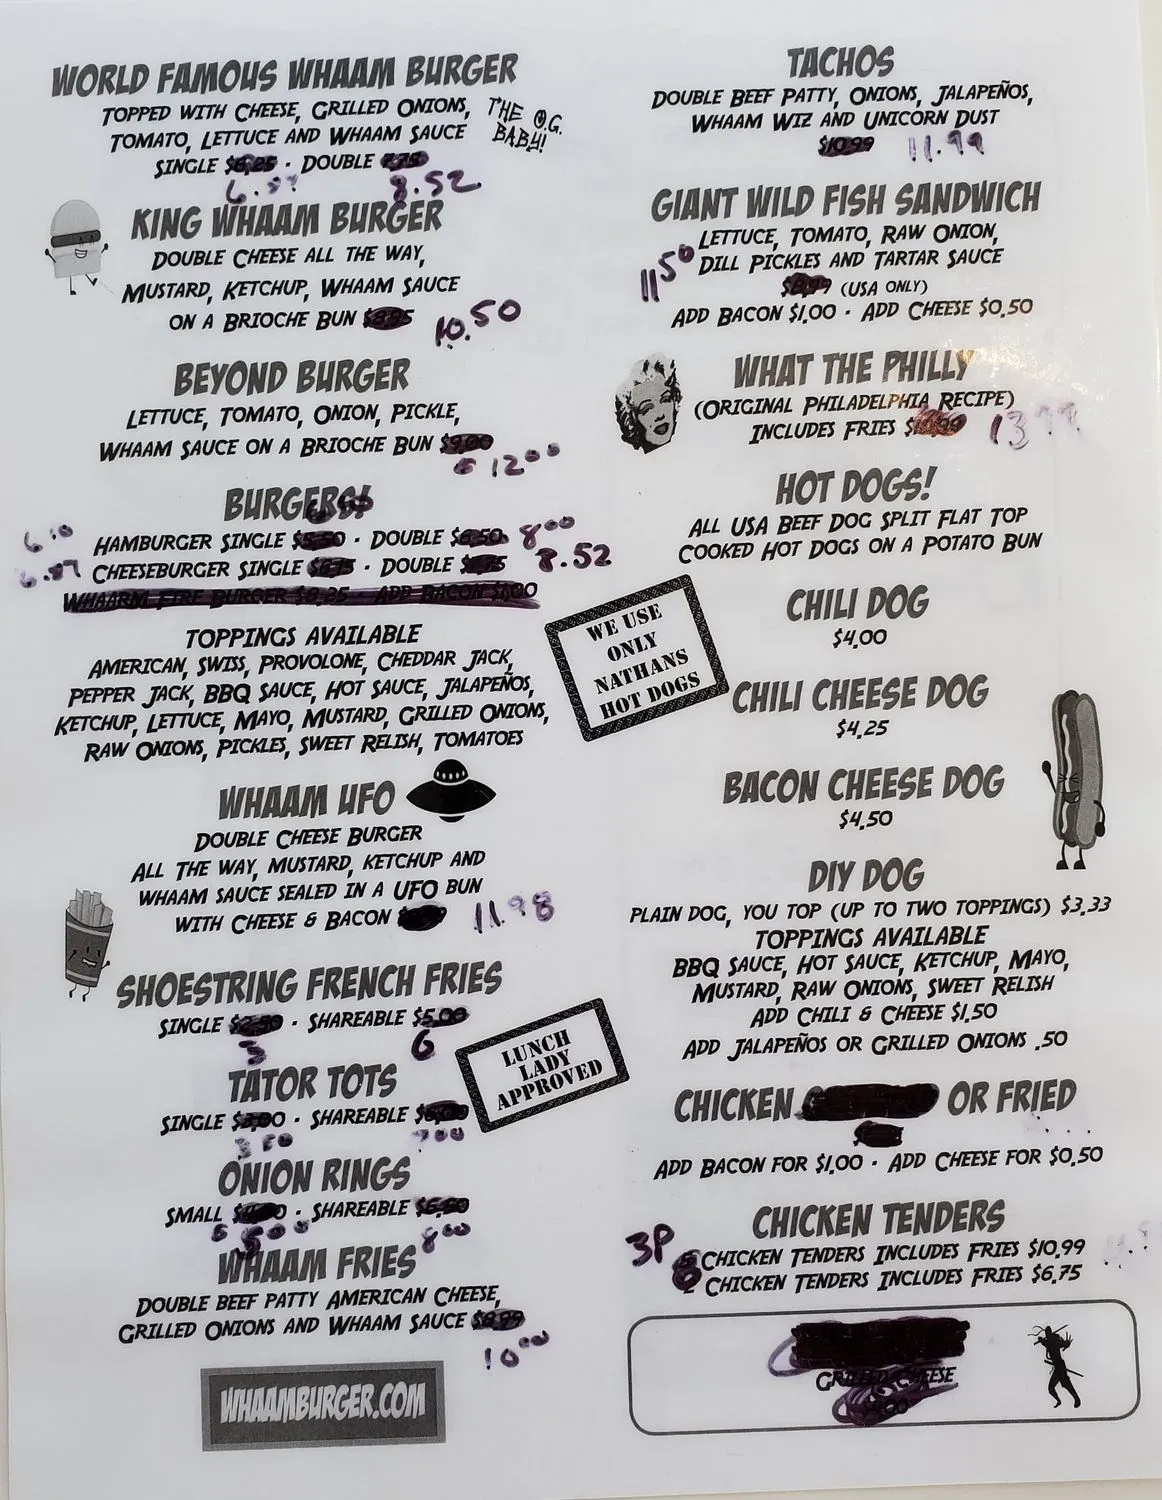 WORLD FAMOUS WHAAM BURGER
TOPPED WITH CHEESE, GRILLED ONIONS,
TOMATO, LETTUCE AND WHAAM SAUCE
THE O.G.
BABY!
SINGLE $6.25 · DOUBLE 7.75
8.52
KING WHAAM BURGER
DOUBLE CHEESE ALL THE WAY,
MUSTARD, KETCHUP, WHAAM SAUCE
ON A BRIOCHE BUN $8.95 10.50
BEYOND BURGER
LETTUCE, TOMATO, ONION, PICKLE,
WHAAM SAUCE ON A BRIOCHE BUN $9.00
12 00
BURGERS!
HAMBURGER SINGLE $5.50 · DOUBLE $6.50 8 00
CHEESEBURGER SINGLE · DOUBLE 8.52
WHAARM FIRE BURGER $8.25 · ADD BACON $1.00
TOPPINGS AVAILABLE
AMERICAN, SWISS, PROVOLONE, CHEDDAR JACK,
PEPPER JACK, BBQ SAUCE, HOT SAUCE, JALAPEÑOS,
KETCHUP, LETTUCE, MAYO, MUSTARD, GRILLED ONIONS,
RAW ONIONS, PICKLES, SWEET RELISH, TOMATOES
WHAAM UFO
DOUBLE CHEESE BURGER
ALL THE WAY, MUSTARD, KETCHUP AND
WHAAM SAUCE SEALED IN A UFO BUN
WITH CHEESE & BACON 11.98
SHOESTRING FRENCH FRIES
SINGLE $2.50 · SHAREABLE $5.00
3 6
TATOR TOTS
SINGLE $3.00 · SHAREABLE
3 50 7 00
ONION RINGS
SMALL · SHAREABLE
8 00
WHAAM FRIES
DOUBLE BEEF PATTY AMERICAN CHEESE,
GRILLED ONIONS AND WHAAM SAUCE
10 00
WHAAMBURGER.COM
WE USE
ONLY
NATHANS
HOT DOGS
LUNCH
LADY
APPROVED
TACHOS
DOUBLE BEEF PATTY, ONIONS, JALAPEÑOS,
WHAAM WIZ AND UNICORN DUST
$10.99 11.99
GIANT WILD FISH SANDWICH
LETTUCE, TOMATO, RAW ONION,
11 50 DILL PICKLES AND TARTAR SAUCE
$8.99 (USA ONLY)
ADD BACON $1.00 · ADD CHEESE $0.50
WHAT THE PHILLY
(ORIGINAL PHILADELPHIA RECIPE)
INCLUDES FRIES $10.99 13 99
HOT DOGS!
ALL USA BEEF DOG SPLIT FLAT TOP
COOKED HOT DOGS ON A POTATO BUN
CHILI DOG
$4.00
CHILI CHEESE DOG
$4.25
BACON CHEESE DOG
$4.50
DIY DOG
PLAIN DOG, YOU TOP (UP TO TWO TOPPINGS) $3.33
TOPPINGS AVAILABLE
BBQ SAUCE, HOT SAUCE, KETCHUP, MAYO,
MUSTARD, RAW ONIONS, SWEET RELISH
ADD CHILI & CHEESE $1.50
ADD JALAPEÑOS OR GRILLED ONIONS .50
CHICKEN OR FRIED
ADD BACON FOR $1.00 · ADD CHEESE FOR $0.50
CHICKEN TENDERS
3P CHICKEN TENDERS INCLUDES FRIES $10.99
CHICKEN TENDERS INCLUDES FRIES $6.75
GRILLED CHEESE